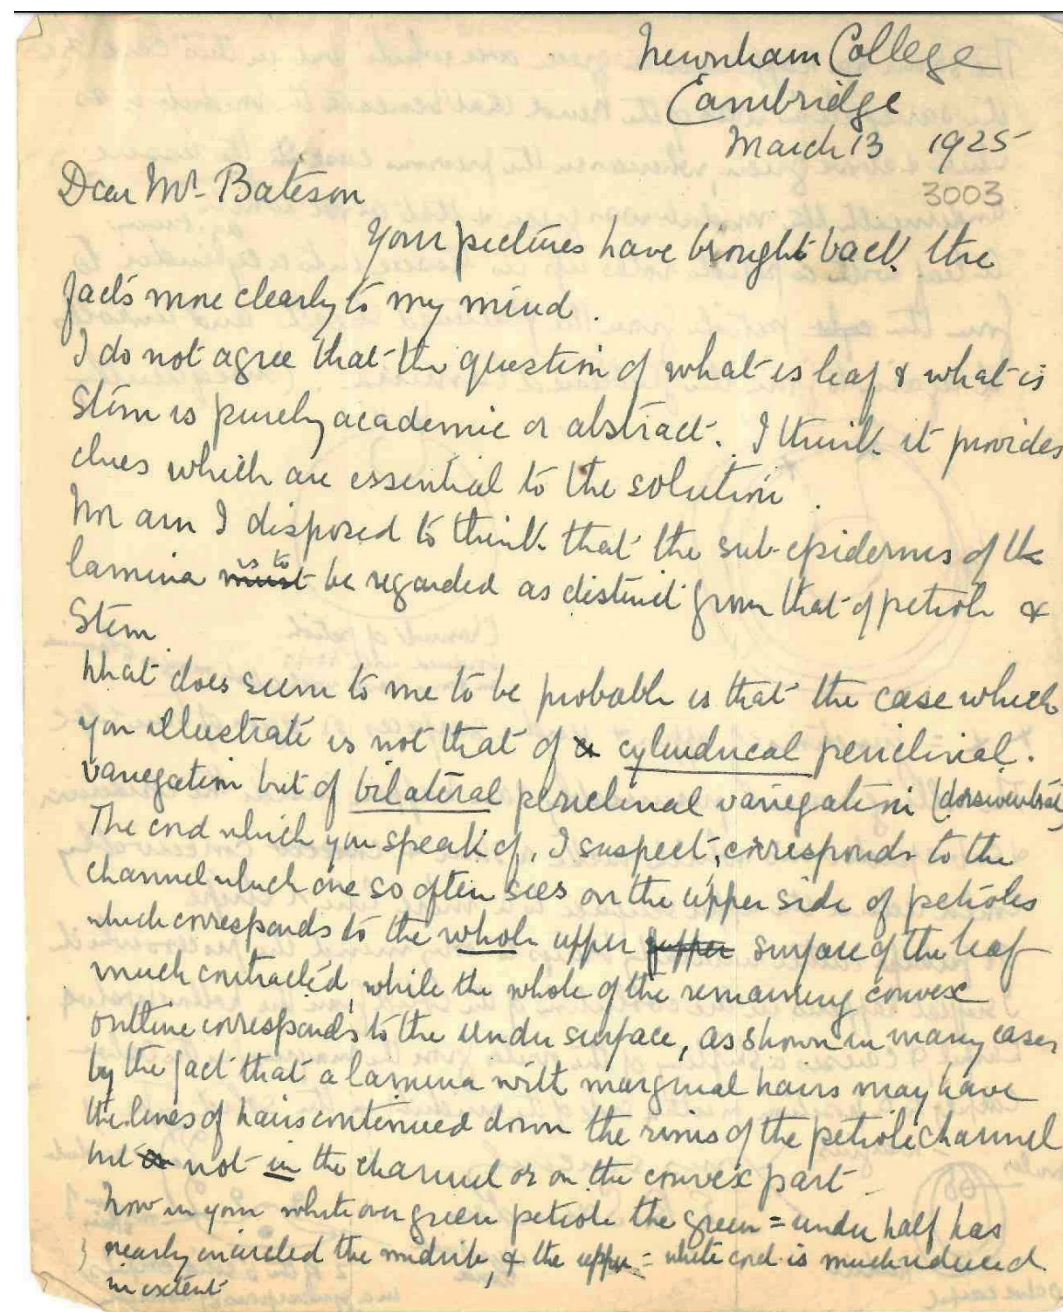 Newnham College
Cambridge
March 13 1925
3003
Dear Mr. Bateson
Your pictures have brought back the
facts more clearly to my mind.
I do not agree that the question of what is leaf & what is
Stem is purely academic or abstract. I think it provides
clues which are essential to the solution.
Nor am I disposed to think that the sub-epidermis of the
lamina must is to be regarded as distinct from that of petiole &
Stem
What does seem to me to be probable is that the case which
you illustrate is not that of a cylindrical periclinal.
variegation but of bilateral periclinal variegation (dorsiventral)
The cord which you speak of, I suspect, corresponds to the
channel which one so often sees on the upper side of petioles
which corresponds to the whole upper upper surface of the leaf
much contracted, while the whole of the remaining convex
outline corresponds to the under surface, as shown in many cases
by the fact that a lamina with marginal hairs may have
the lines of hairs continued down the rims of the petiole channel
but not in the channel or on the convex part
Now in your white over green petiole the green = under half has
nearly encircled the midrib, & the upper = white cord is much reduced
in extent